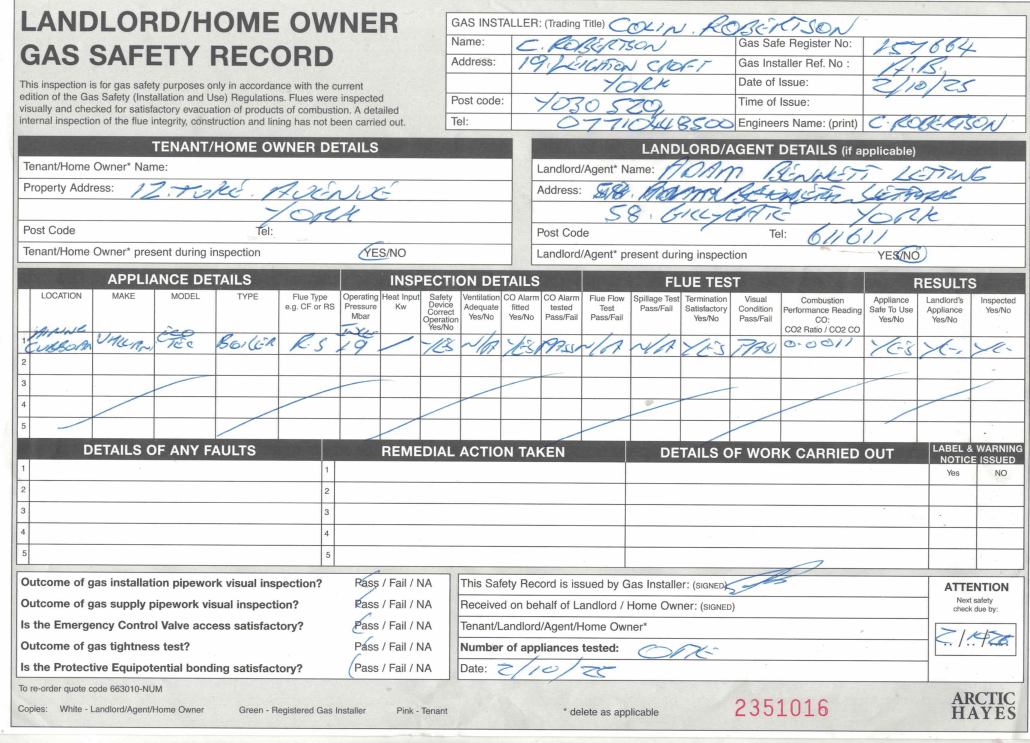 LANDLORD/HOME OWNER
GAS SAFETY RECORD
This inspection is for gas safety purposes only in accordance with the current
edition of the Gas Safety (Installation and Use) Regulations. Flues were inspected
visually and checked for satisfactory evacuation of products of combustion. A detailed
internal inspection of the flue integrity, construction and lining has not been carried out.
GAS INSTALLER: (Trading Title) COLIN. ROBERTSON
Name: C. ROBERTSON
Gas Safe Register No: 157664
Address: 19. LEIGHTON CROFT
Gas Installer Ref. No : A.B.
YORK
Date of Issue: 2/10/25
Post code: YO30
Time of Issue:
Tel: 07710448500
Engineers Name: (print) C. ROBERTSON
TENANT/HOME OWNER DETAILS
Tenant/Home Owner* Name:
Property Address: 12. AVENUE
YORK
Post Code Tel:
Tenant/Home Owner* present during inspection YES/NO
LANDLORD/AGENT DETAILS (if applicable)
Landlord/Agent* Name: ADAM BENNETT LETTING
Address:
58. GILLYGATE YORK
Post Code Tel: 611611
Landlord/Agent* present during inspection YES/NO
APPLIANCE DETAILS INSPECTION DETAILS FLUE TEST RESULTS
LOCATION MAKE MODEL TYPE Flue Type e.g. CF or RS Operating Pressure Mbar Heat Input Kw Safety Device Correct Operation Yes/No Ventilation Adequate Yes/No CO Alarm fitted Yes/No CO Alarm tested Pass/Fail Flue Flow Test Pass/Fail Spillage Test Pass/Fail Termination Satisfactory Yes/No Visual Condition Pass/Fail Combustion Performance Reading CO: CO2 Ratio / CO2 CO Appliance Safe To Use Yes/No Landlord's Appliance Yes/No Inspected Yes/No
1 CUBBOARD VAILLANT ECO TEC BOILER R.S 19 YES N/A YES PASS N/A N/A YES PASS 0.0011 YES
2
3
4
5
DETAILS OF ANY FAULTS REMEDIAL ACTION TAKEN DETAILS OF WORK CARRIED OUT LABEL & WARNING NOTICE ISSUED
Yes NO
1 1
2 2
3 3
4 4
5 5
Outcome of gas installation pipework visual inspection? Pass / Fail / NA
Outcome of gas supply pipework visual inspection? Pass / Fail / NA
Is the Emergency Control Valve access satisfactory? Pass / Fail / NA
Outcome of gas tightness test? Pass / Fail / NA
Is the Protective Equipotential bonding satisfactory? Pass / Fail / NA
This Safety Record is issued by Gas Installer: (SIGNED)
Received on behalf of Landlord / Home Owner: (SIGNED)
Tenant/Landlord/Agent/Home Owner*
Number of appliances tested: ONE
Date: 2/10/25
ATTENTION
Next safety
check due by:
To re-order quote code 663010-NUM
Copies: White - Landlord/Agent/Home Owner Green - Registered Gas Installer Pink - Tenant
* delete as applicable
2351016
ARCTIC
HAYES